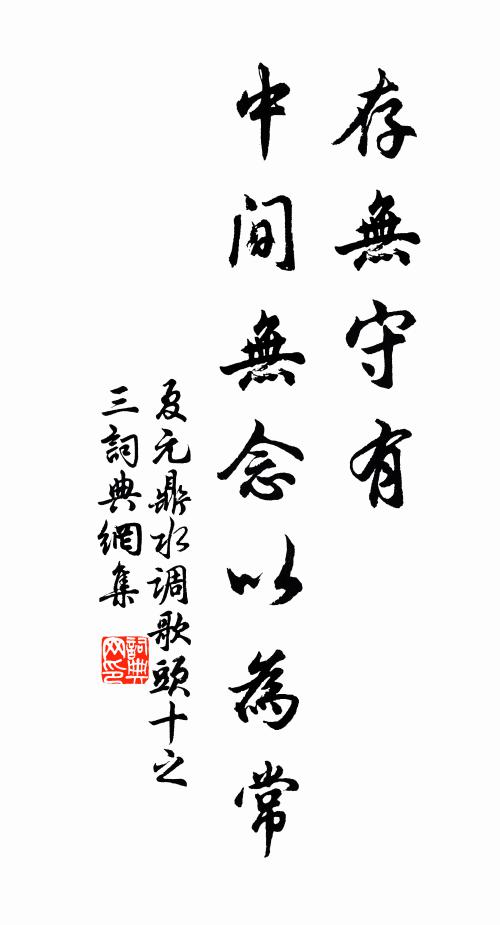 存無守有
中間無念以為常
夏元鼎水调歌頭十之
三詞典網集
詞典网印